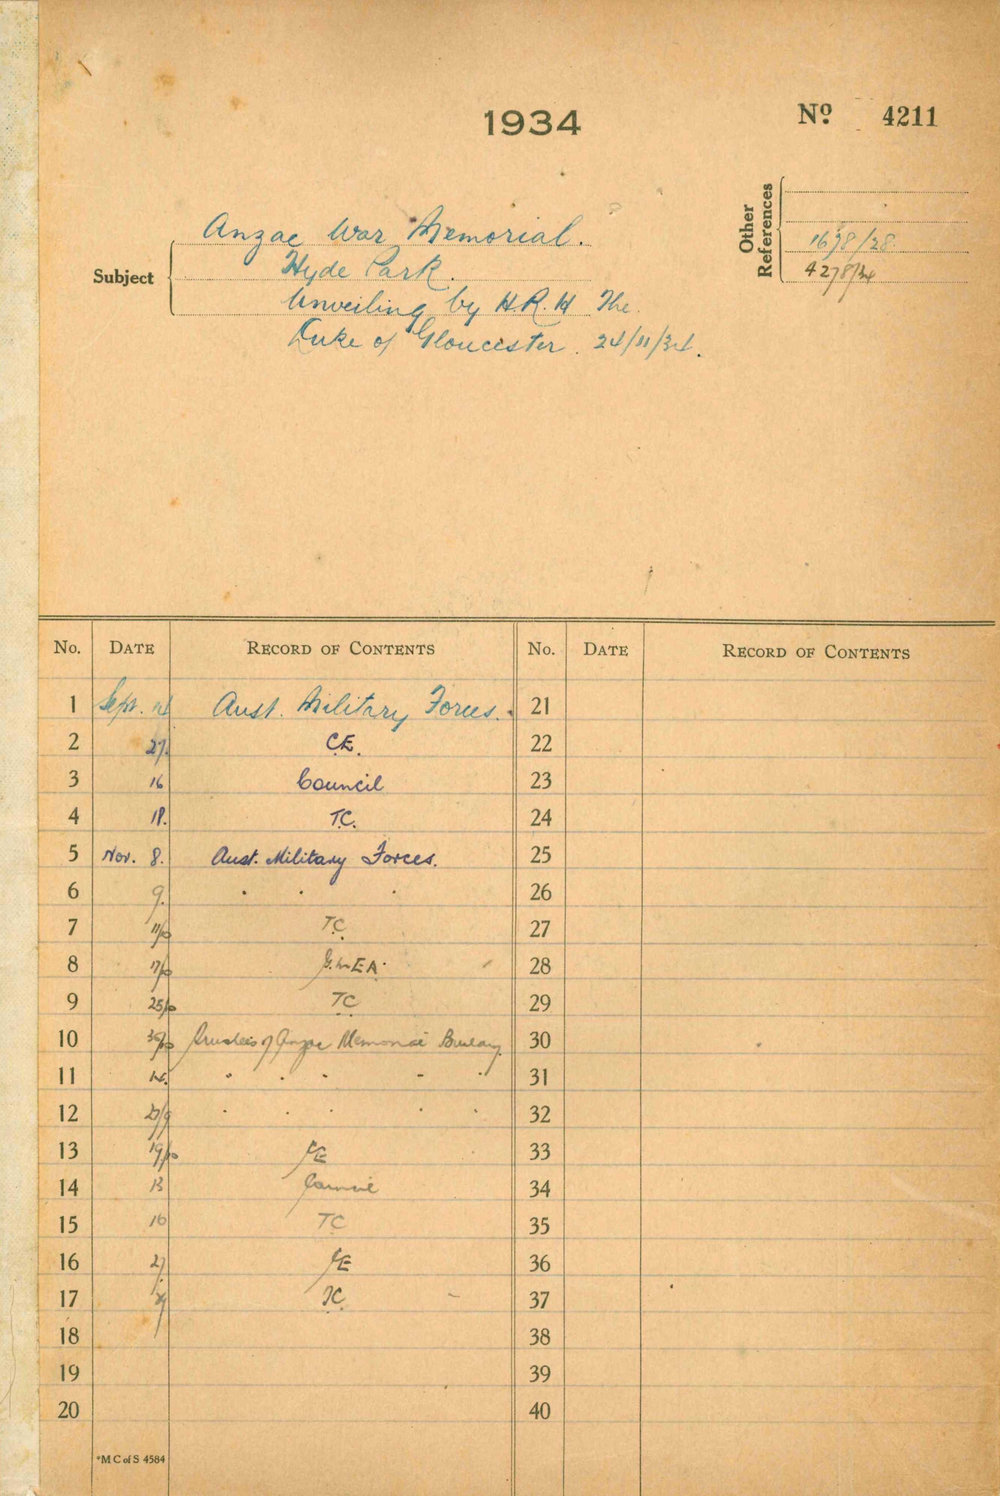 1934
Nº 4211
Other References
1698/28
4278/34
Subject
Anzac War Memorial.
Hyde Park.
Unveiling by H.R.H The
Duke of Gloucester. 24/11/34.
No. DATE RECORD OF CONTENTS No. DATE RECORD OF CONTENTS
1 Sept. Aust. Military Forces. 21
2 27. C.E. 22
3 16 Council 23
4 18. T.C. 24
5 Nov. 8. Aust. Military Forces. 25
6 9. " " " 26
7 11/10 T.C. 27
8 17/10 28
9 25/10 TC 29
10 30/10 Trustees of Anzac Memorial 30
11 " " " " " 31
12 27/9 " " " " " 32
13 19/10 CE 33
14 13 Council 34
15 16 TC 35
16 27 CE 36
17 TC. 37
18 38
19 39
20 40
*M C of S 4584